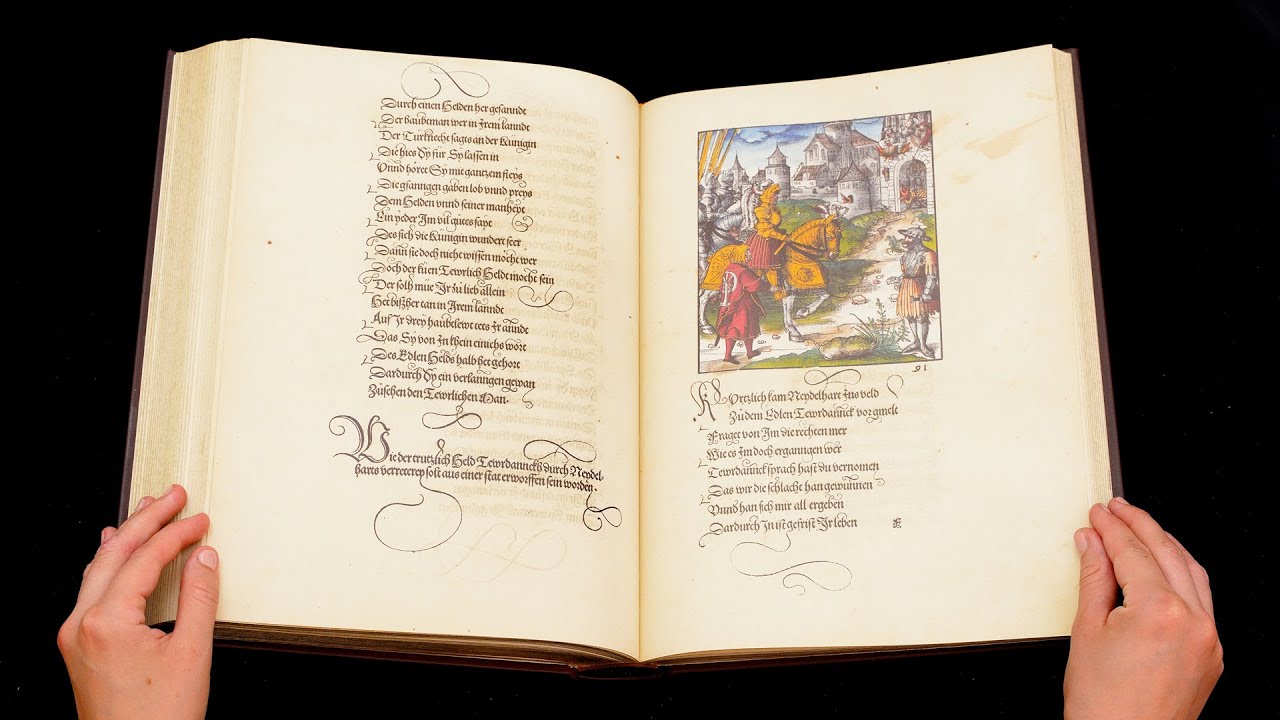 Durch einen Helden her gesanndt
Der baubeman wer in Irem lanndt
Der Turknecht sagts an der Künigin
Die hies Dy für Sy lassen in
Vnnd höret Sy mit gantzem fleys
Die gfanngen gaben lob vnnd preys
Dem Helden vnnd seiner manheyt
Ein yeder Im vil gůtes sayt
Des sich die Künigin wundert seer
Dann sie doch nicht wissen mocht wer
Doch der kuen Tewrlich Heldt mocht sein
Der solh müe Ir zů lieb allein
Het bißher tan in Irem lanndt
Auf Ir drey haubtlewt
Das Sy von In khein einichs wort
Des Edlen Helds halb het gehort
Dardurch Dy ein verlanngen gewan
Zůsehen den Tewrlichen Man.
Wie der trutzlich Held Tewrdannckh durch Neydel-
harts verreterey solt aus einer stat erworffen sein worden.
91
Kůrtzlich kam Neydelhart Ins veld
Zů dem Edlen Tewrdannck vorgmelt
Fraget von Im die rechten mer
Wie es Im doch erganngen wer
Tewrdannck sprach hast du vernomen
Das wir die schlacht han gewunnen
Vnnd han sich mir all ergeben
Dardurch In ist gefrist Ir leben